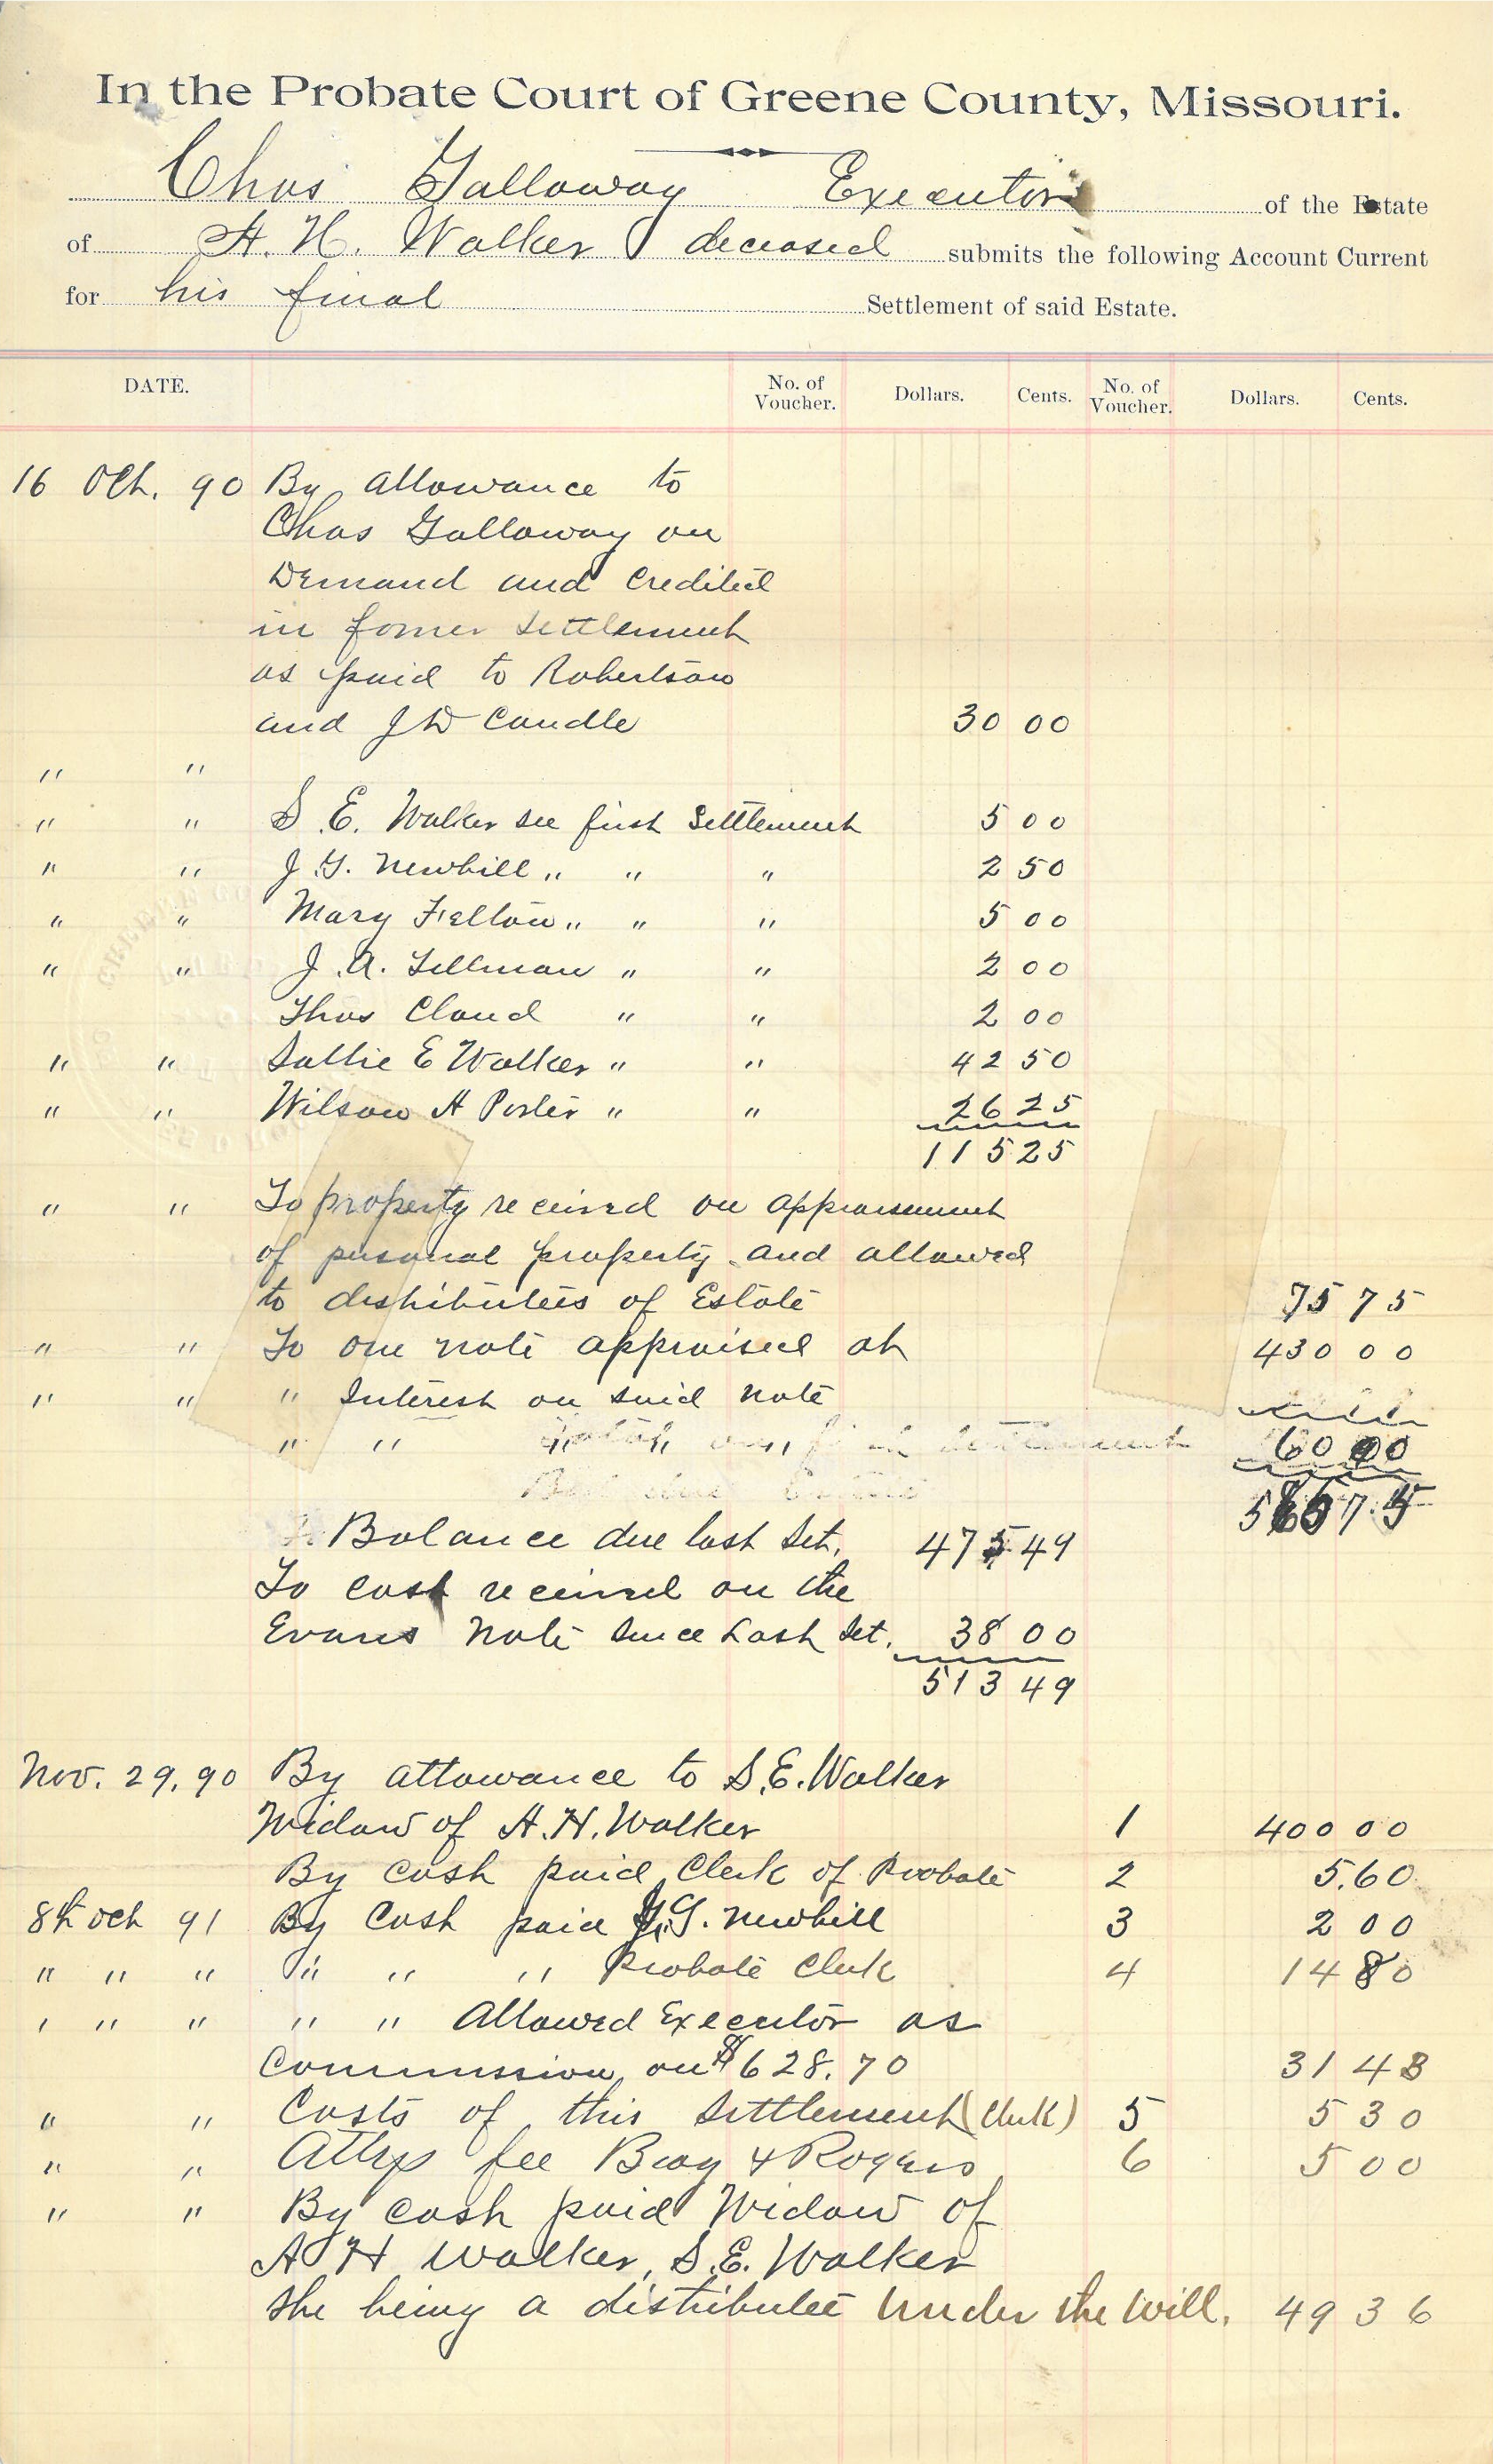 In the Probate Court of Greene County, Missouri.
Chas Galloway Executor of the Estate
of A. H. Walker deceased submits the following Account Current
for his final Settlement of said Estate.
DATE. No. of Voucher. Dollars. Cents. No. of Voucher. Dollars. Cents.
16 Oct. 90 By allowance to
Chas Galloway on
Demand and credited
in former settlement
as paid to Robertson
and J D Caudle 30 00
" "
" " S. E. Walker see first Settlement 5 00
" " J. G. Newbill " " " 2 50
" " Mary Felton " " " 5 00
" " J. A. Tillman " " 2 00
Thos Cloud " " 2 00
" " Sallie E Walker " " 42 50
" " Wilson H Porter " " 26 25
115 25
" " To property received on appraisement
of personal property and allowed
to distributees of Estate 75 75
" " To one note appraised at 430 00
" " " Interest on said note
" " settlement 60 00
565 75
Balance due last Set. 475 49
To cash received on the
Evans note since Last Set. 38 00
513 49
Nov. 29, 90 By allowance to S.E. Walker
Widow of A. H. Walker 1 400 00
By cash paid Clerk of Probate 2 5.60
8th Oct 91 By Cash paid J.G. Newbill 3 2 00
" " " " " " Probate Clerk 4 14 80
" " " " " Allowed Executor as
Commission on $628.70 31 43
" " Costs of this Settlement (Clerk) 5 5 30
" " Attys fee Bray & Rogers 6 5 00
" " By cash paid Widow of
A H Walker, S.E. Walker
she being a distributee under the will. 49 36